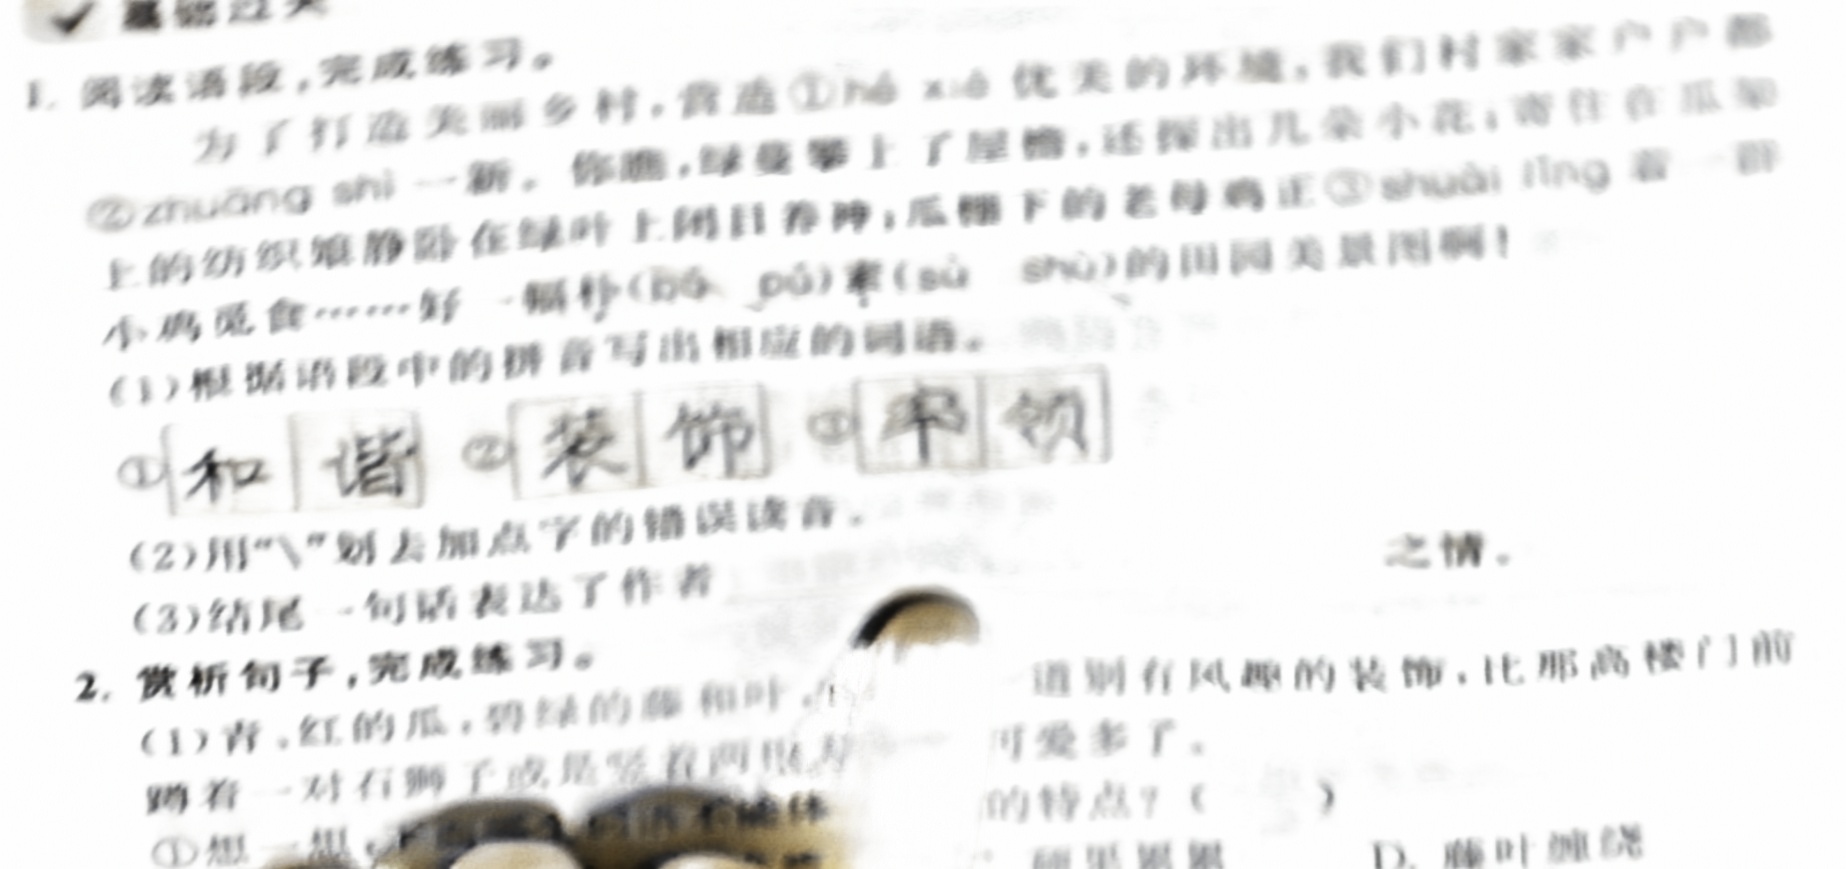 基础过关
1. 阅读语段,完成练习。
为了打造美丽乡村,营造①hé xié 优美的环境,我们村家家户户都
②zhuāng shì 一新。你瞧,绿蔓攀上了屋檐,还探出几朵小花;寄住在瓜架
上的纺织娘静卧在绿叶上闭目养神;瓜棚下的老母鸡正③shuài lǐng 着一群
小鸡觅食……好一幅朴(pǔ pú)素(sù shù)的田园美景图啊!
(1)根据语段中的拼音写出相应的词语。
①和谐 ②装饰 ③率领
(2)用“\”划去加点字的错误读音。
(3)结尾一句话表达了作者 之情。
2. 赏析句子,完成练习。
(1)青、红的瓜,碧绿的藤和叶, 道别有风趣的装饰,比那高楼门前
蹲着一对石狮子或是竖着两根 可爱多了。
①想一想, 的特点?( )
硕果累累 D. 藤叶缠绕